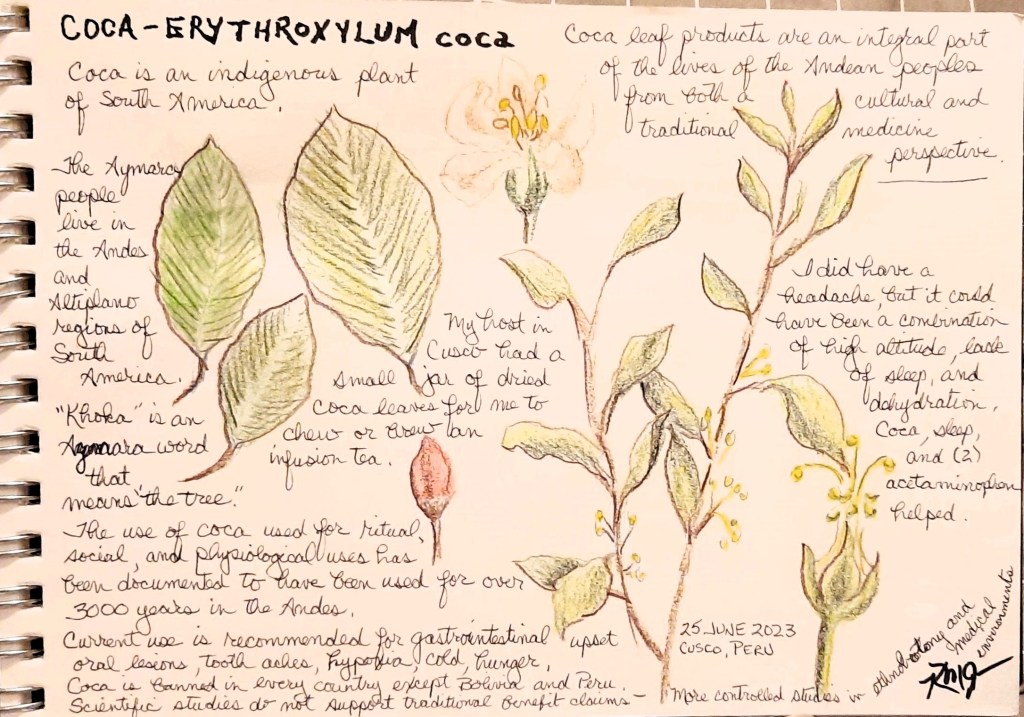 COCA-ERYTHROXYLUM coca
Coca is an indigenous plant
of South America.
Coca leaf products are an integral part
of the lives of the Andean peoples
from both a cultural and
traditional medicine
perspective.
The Aymara
people
live in
the Andes
and
Altiplano
regions of
South
America.
"Khoka" is an
Aymara word
that
means "the tree."
My host in
Cusco had a
small jar of dried
coca leaves for me to
chew or brew an
infusion tea.
I did have a
headache, but it could
have been a combination
of high altitude, lack
of sleep, and
dehydration.
Coca, sleep,
and (2)
acetaminophen
helped.
The use of coca used for ritual,
social, and physiological uses has
been documented to have been used for over
3000 years in the Andes.
Current use is recommended for gastrointestinal upset
oral lesions, tooth aches, hypoxia, cold, hunger,
Coca is banned in every country except Bolivia and Peru.
Scientific studies do not support traditional benefit claims -
25 JUNE 2023
CUSCO, PERU
More controlled studies in ethnobotony and
medical
environments
RMJ